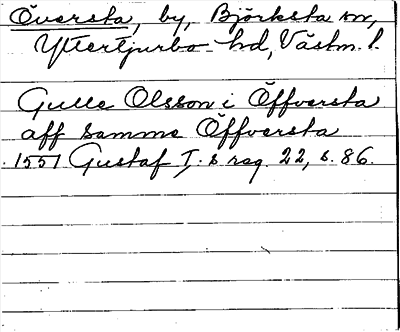 Översta, by, Björksta sn,
Yttertjurbo hd, Västm. l.
Gulle Olsson i Öffversta
aff samme Öffversta
1551 Gustaf I.s reg. 22, s. 86.